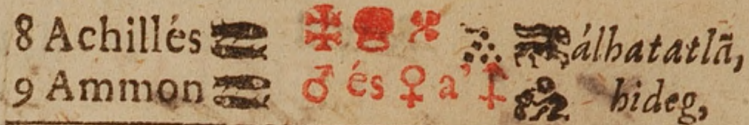 8 Achillés álhatatlã,
9 Ammon ♂ és ♀ a' hideg,